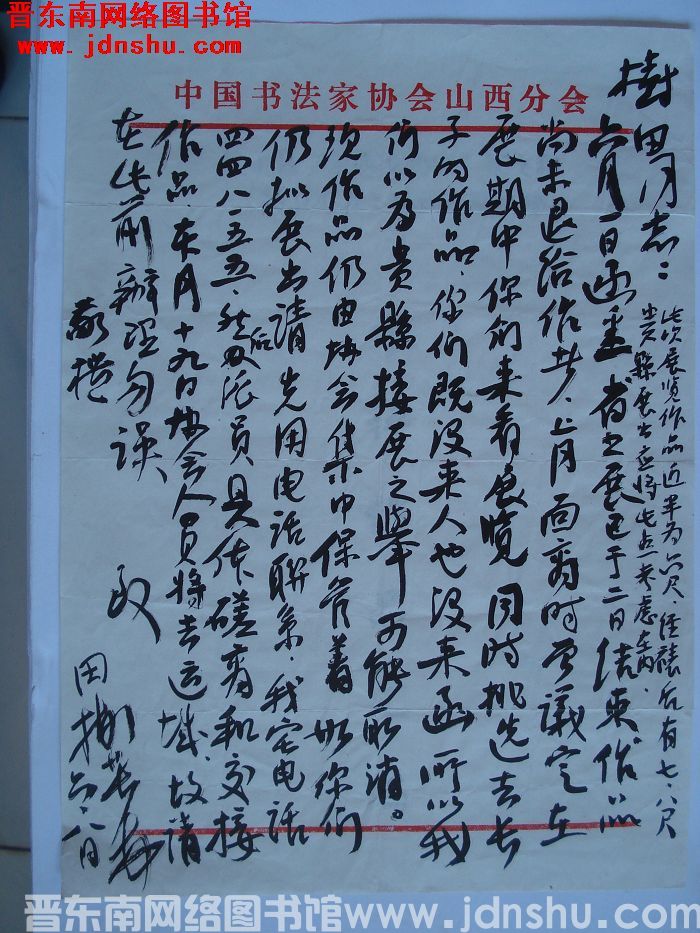 晋东南网络图书馆
www.jdnshu.com
中国书法家协会山西分会
树田同志：
六月一日函悉，省之展已于二日结束，作品
尚未退给作者，上月面商时曾议定在
展期中你们来看展览同时挑选去长
子的作品，你们既没来人也没来函，所以我
们以为贵縣接展之舉可能取消。
现作品仍由协会集中保管着，如你们
仍拟展出请先用电话联系，我宅电话
四四八二五五，然后双派员具体磋商和交接
作品，本月十九日协会人员将去运城，故请
在此前辦理勿误
敬礼
田树苌
六、八日
此次展览作品近半为六尺，经裱后有七、八尺
贵縣展出应将此点考虑在内。
晋东南网络图书馆www.jdnshu.com